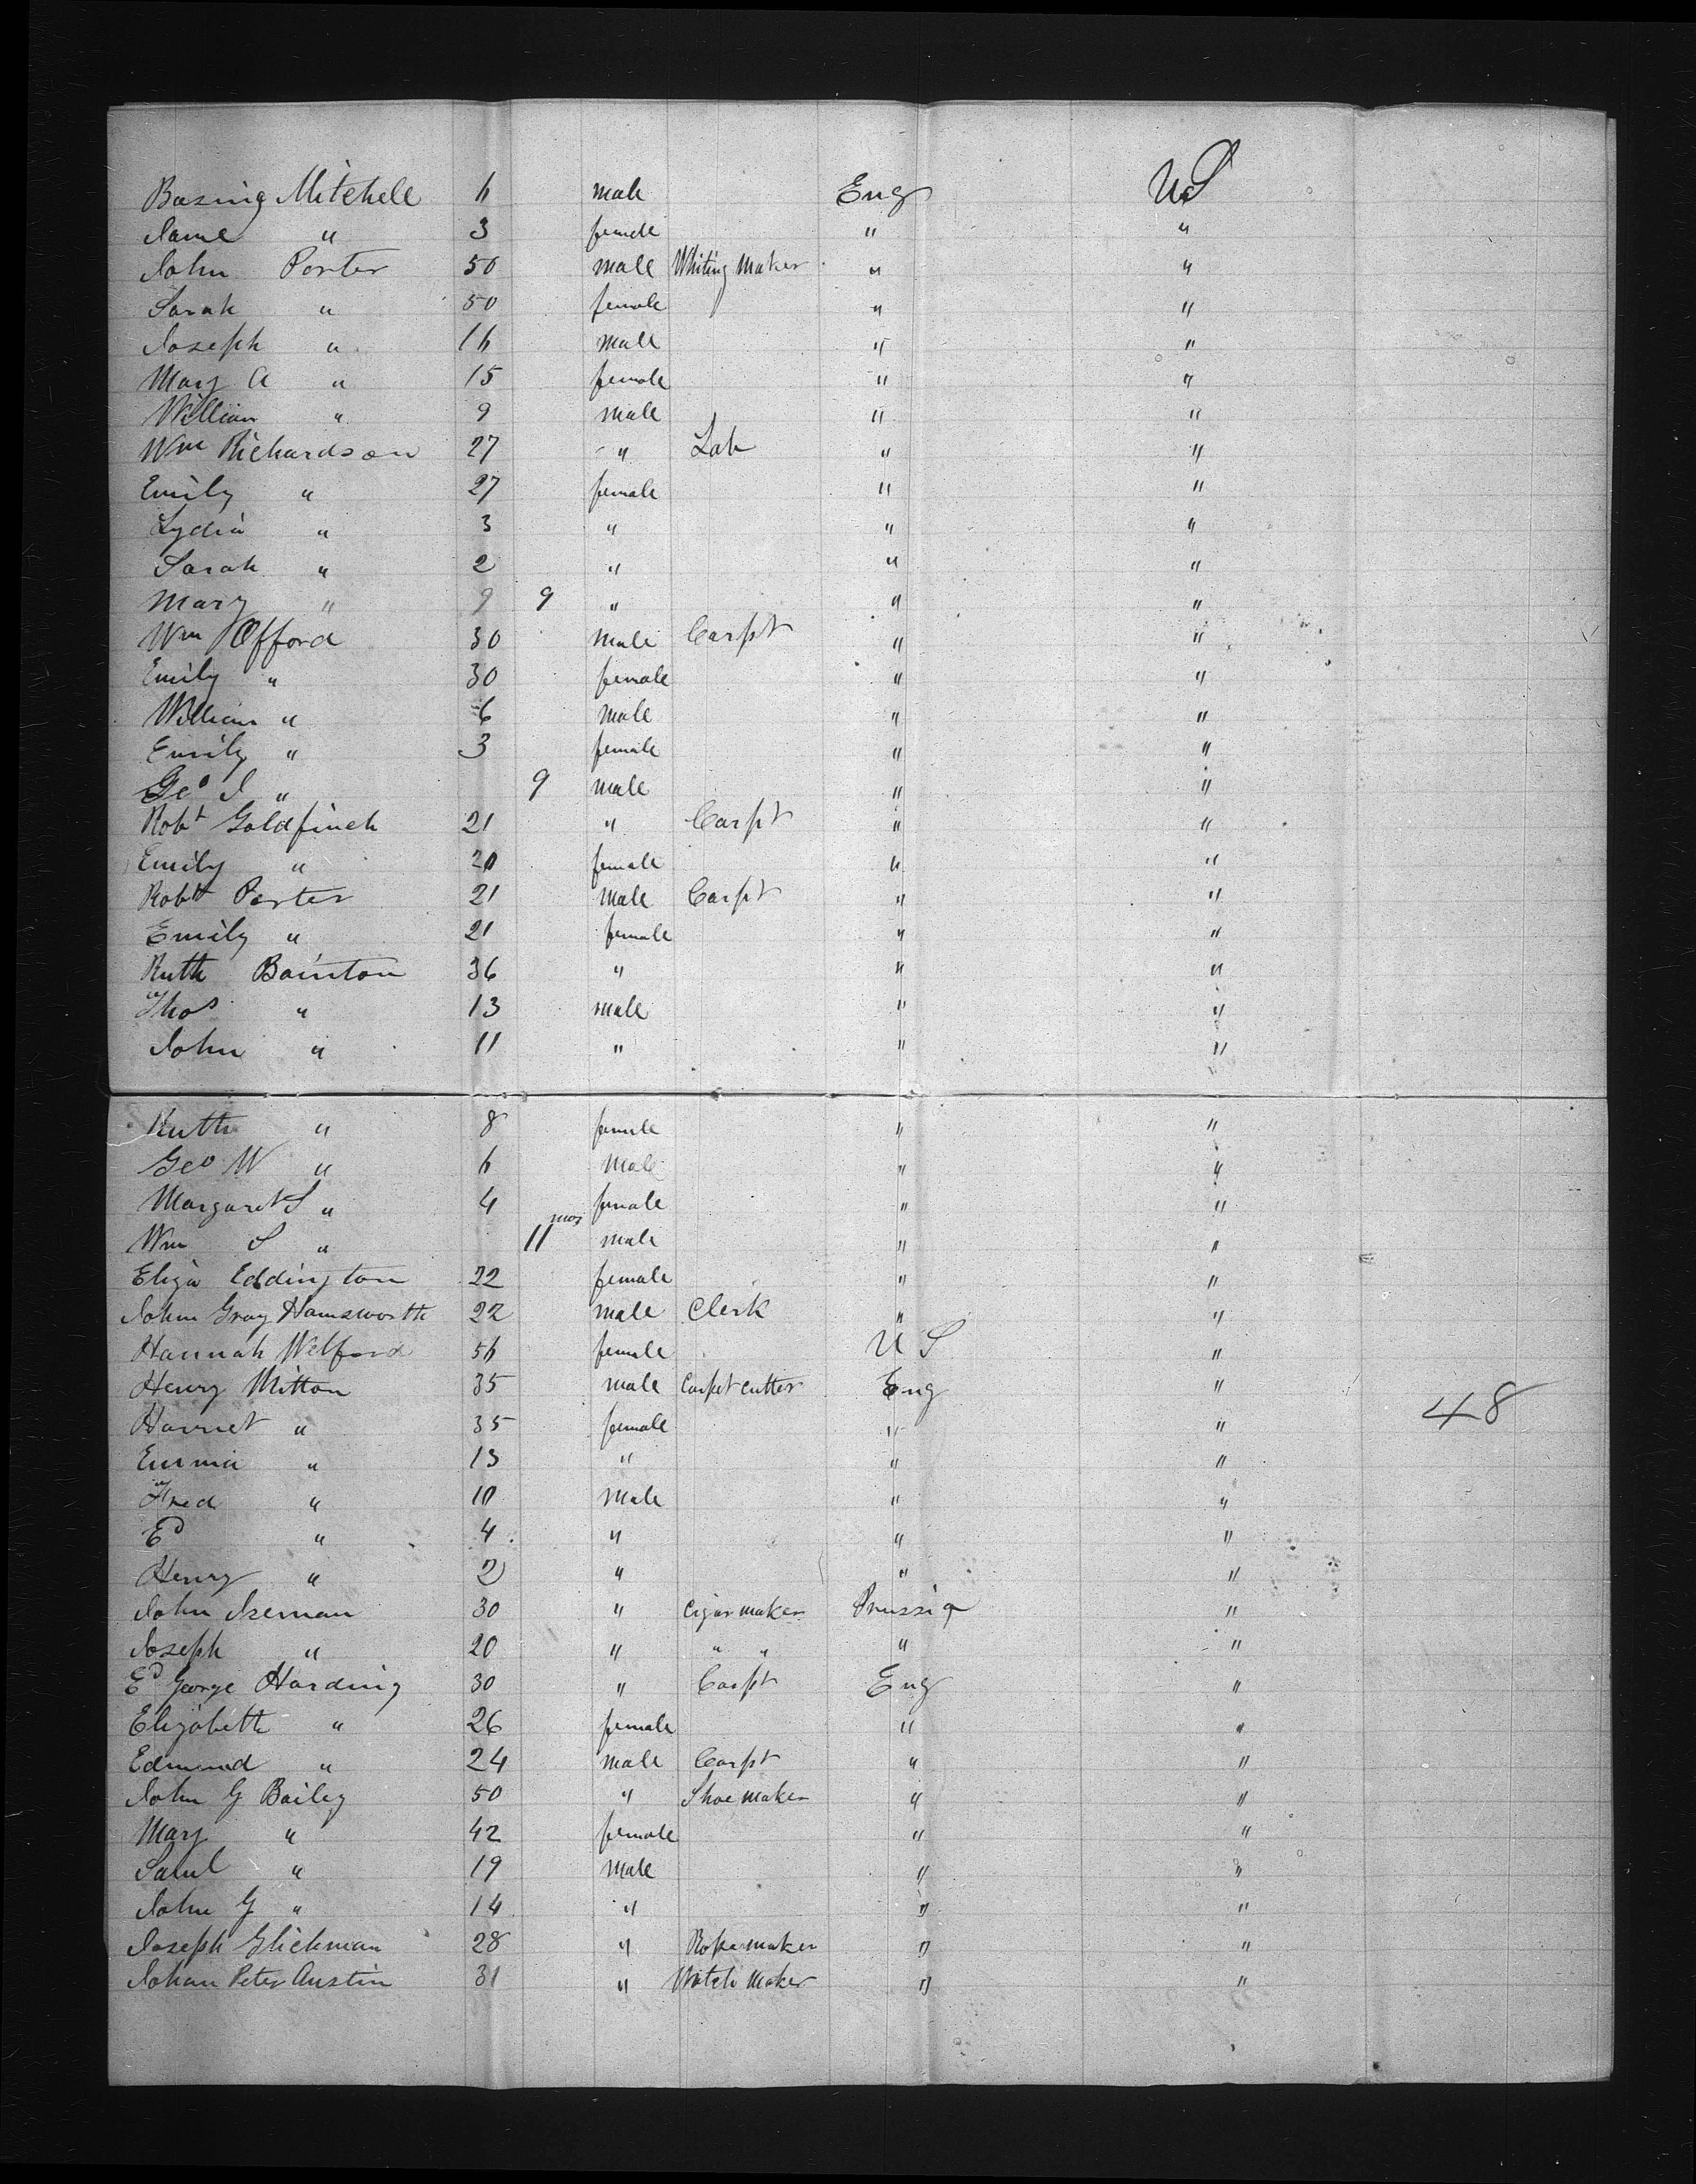 Basing Mitchell 6 male Eng US
Jane " 3 female " "
John Porter 50 male Whiting Maker " "
Sarah " 50 female " "
Joseph " 16 male " "
Mary A " 15 female " "
William " 9 male " "
Wm Richardson 27 " Lab " "
Emily " 27 female " "
Lydia " 3 " " "
Sarah " 2 " " "
Mary " 9 9 " " "
Wm Offord 30 male Carpt " "
Emily " 30 female " "
William " 6 male " "
Emily " 3 female " "
Geo J " 9 male " "
Robt Goldfinch 21 " Carpt " "
Emily " 20 female " "
Robt Porter 21 male Carpt " "
Emily " 21 female " "
Ruth Bainton 36 " " "
Thos " 13 male " "
John " 11 " " "
Ruth " 8 female " "
Geo W " 6 male " "
Margaret S " 4 female " "
Wm S " 11 mos male " "
Eliza Eddington 22 female " "
John Gray Hamsworth 22 male Clerk " "
Hannah Welford 56 female U S "
Henry Mitton 35 male Carpet cutter Eng " 48
Harriet " 35 female " "
Emma " 13 " " "
Fred " 10 male " "
Ed " 4 " " "
Henry " 2 " " "
John Iseman 30 " Cigar maker Prussia "
Joseph " 20 " " " " "
Ed George Harding 30 " Carpt Eng "
Elizabeth " 26 female " "
Edmund " 24 male Carpt " "
John G Bailey 50 " Shoe maker " "
Mary " 42 female " "
Saml " 19 male " "
John G " 14 " " "
Joseph Glickman 28 " Rope maker " "
Johan Peter Austin 31 " Watch Maker " "